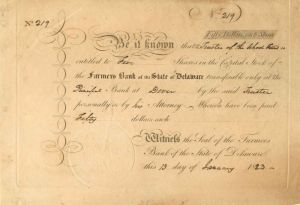 No. 219
No. 219
Fifty Dollars each Share
Be it known that Trustee of the School Fund is
entitled to Ten Shares in the Capital Stock of
the Farmers Bank of the State of Delaware transferable only at the
Bank at Dover by the said Trustee
personally or by his Attorney Whereon have been paid
Fifty dollars each
Witness the Seal of the Farmers
Bank of the State of Delaware
this 13 day of January 1823